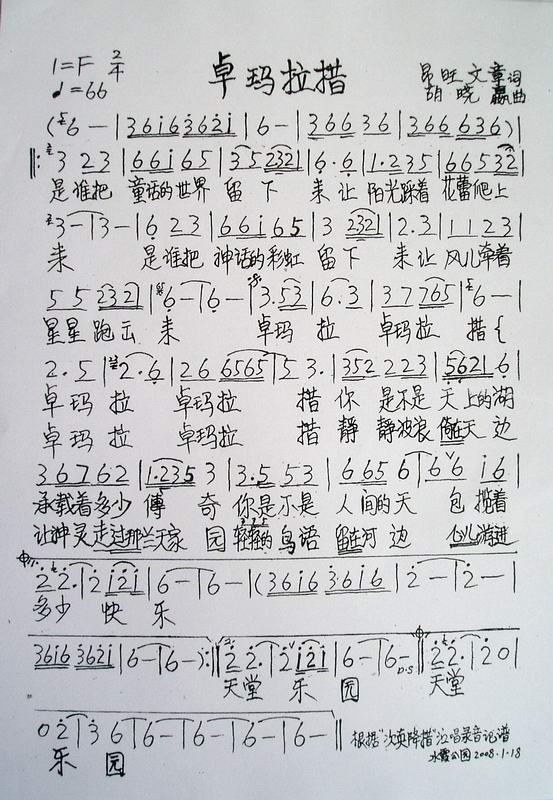 1=F 2/4
♩=66
卓玛拉措
昂旺文章词
胡晓 曲
(6 — | 3616 3621 | 6 — | 366 36 | 366 636 )|
3 23 | 661 65 | 35 2321 | 6· 6 | 1·235 | 66532 |
是谁把 童话的世界 留下 来 让 阳光踩着 花蕾爬上
3— | 3— | 6 23 | 661 65 | 3 2321 | 2·3 | 1123 |
来 是谁把 神话的彩虹 留下 来让 风儿牵着
55 2321 | 6— | 6— | 3·53 | 6·3 | 37765 | 6— |
星星跑去 来 卓玛 拉 卓玛拉 措
2·5 | 2·6 | 26 6565 | 5 3· | 352 223 | 5621·6 |
卓玛 拉 卓玛拉 措 你 是不是 天上的湖
卓玛 拉 卓玛拉 措 静 静波浪 倚在天 边
36762 | 1·235 3 | 3·5 53 | 665 6 | 66 16 |
承载着多少 传 奇 你是不是 人间的天 包 揽着
让神灵走过那兰天家 园 轻轻的鸟语 留在河 边 心儿游进
22· | 2 121 | 6— | 6— | (3616 3616 | 2— | 2— |
多少 快 乐
3616 3621 | 6— | 6— ):‖ 22· | 2 121 | 6— | 6— D.S ‖ 22· | 20 |
天堂 乐 园 天堂
02 | 3 6 | 6— | 6— | 6— | 6— ‖
乐 园
根据"降措"演唱录音记谱
水霞公园2008.1.18